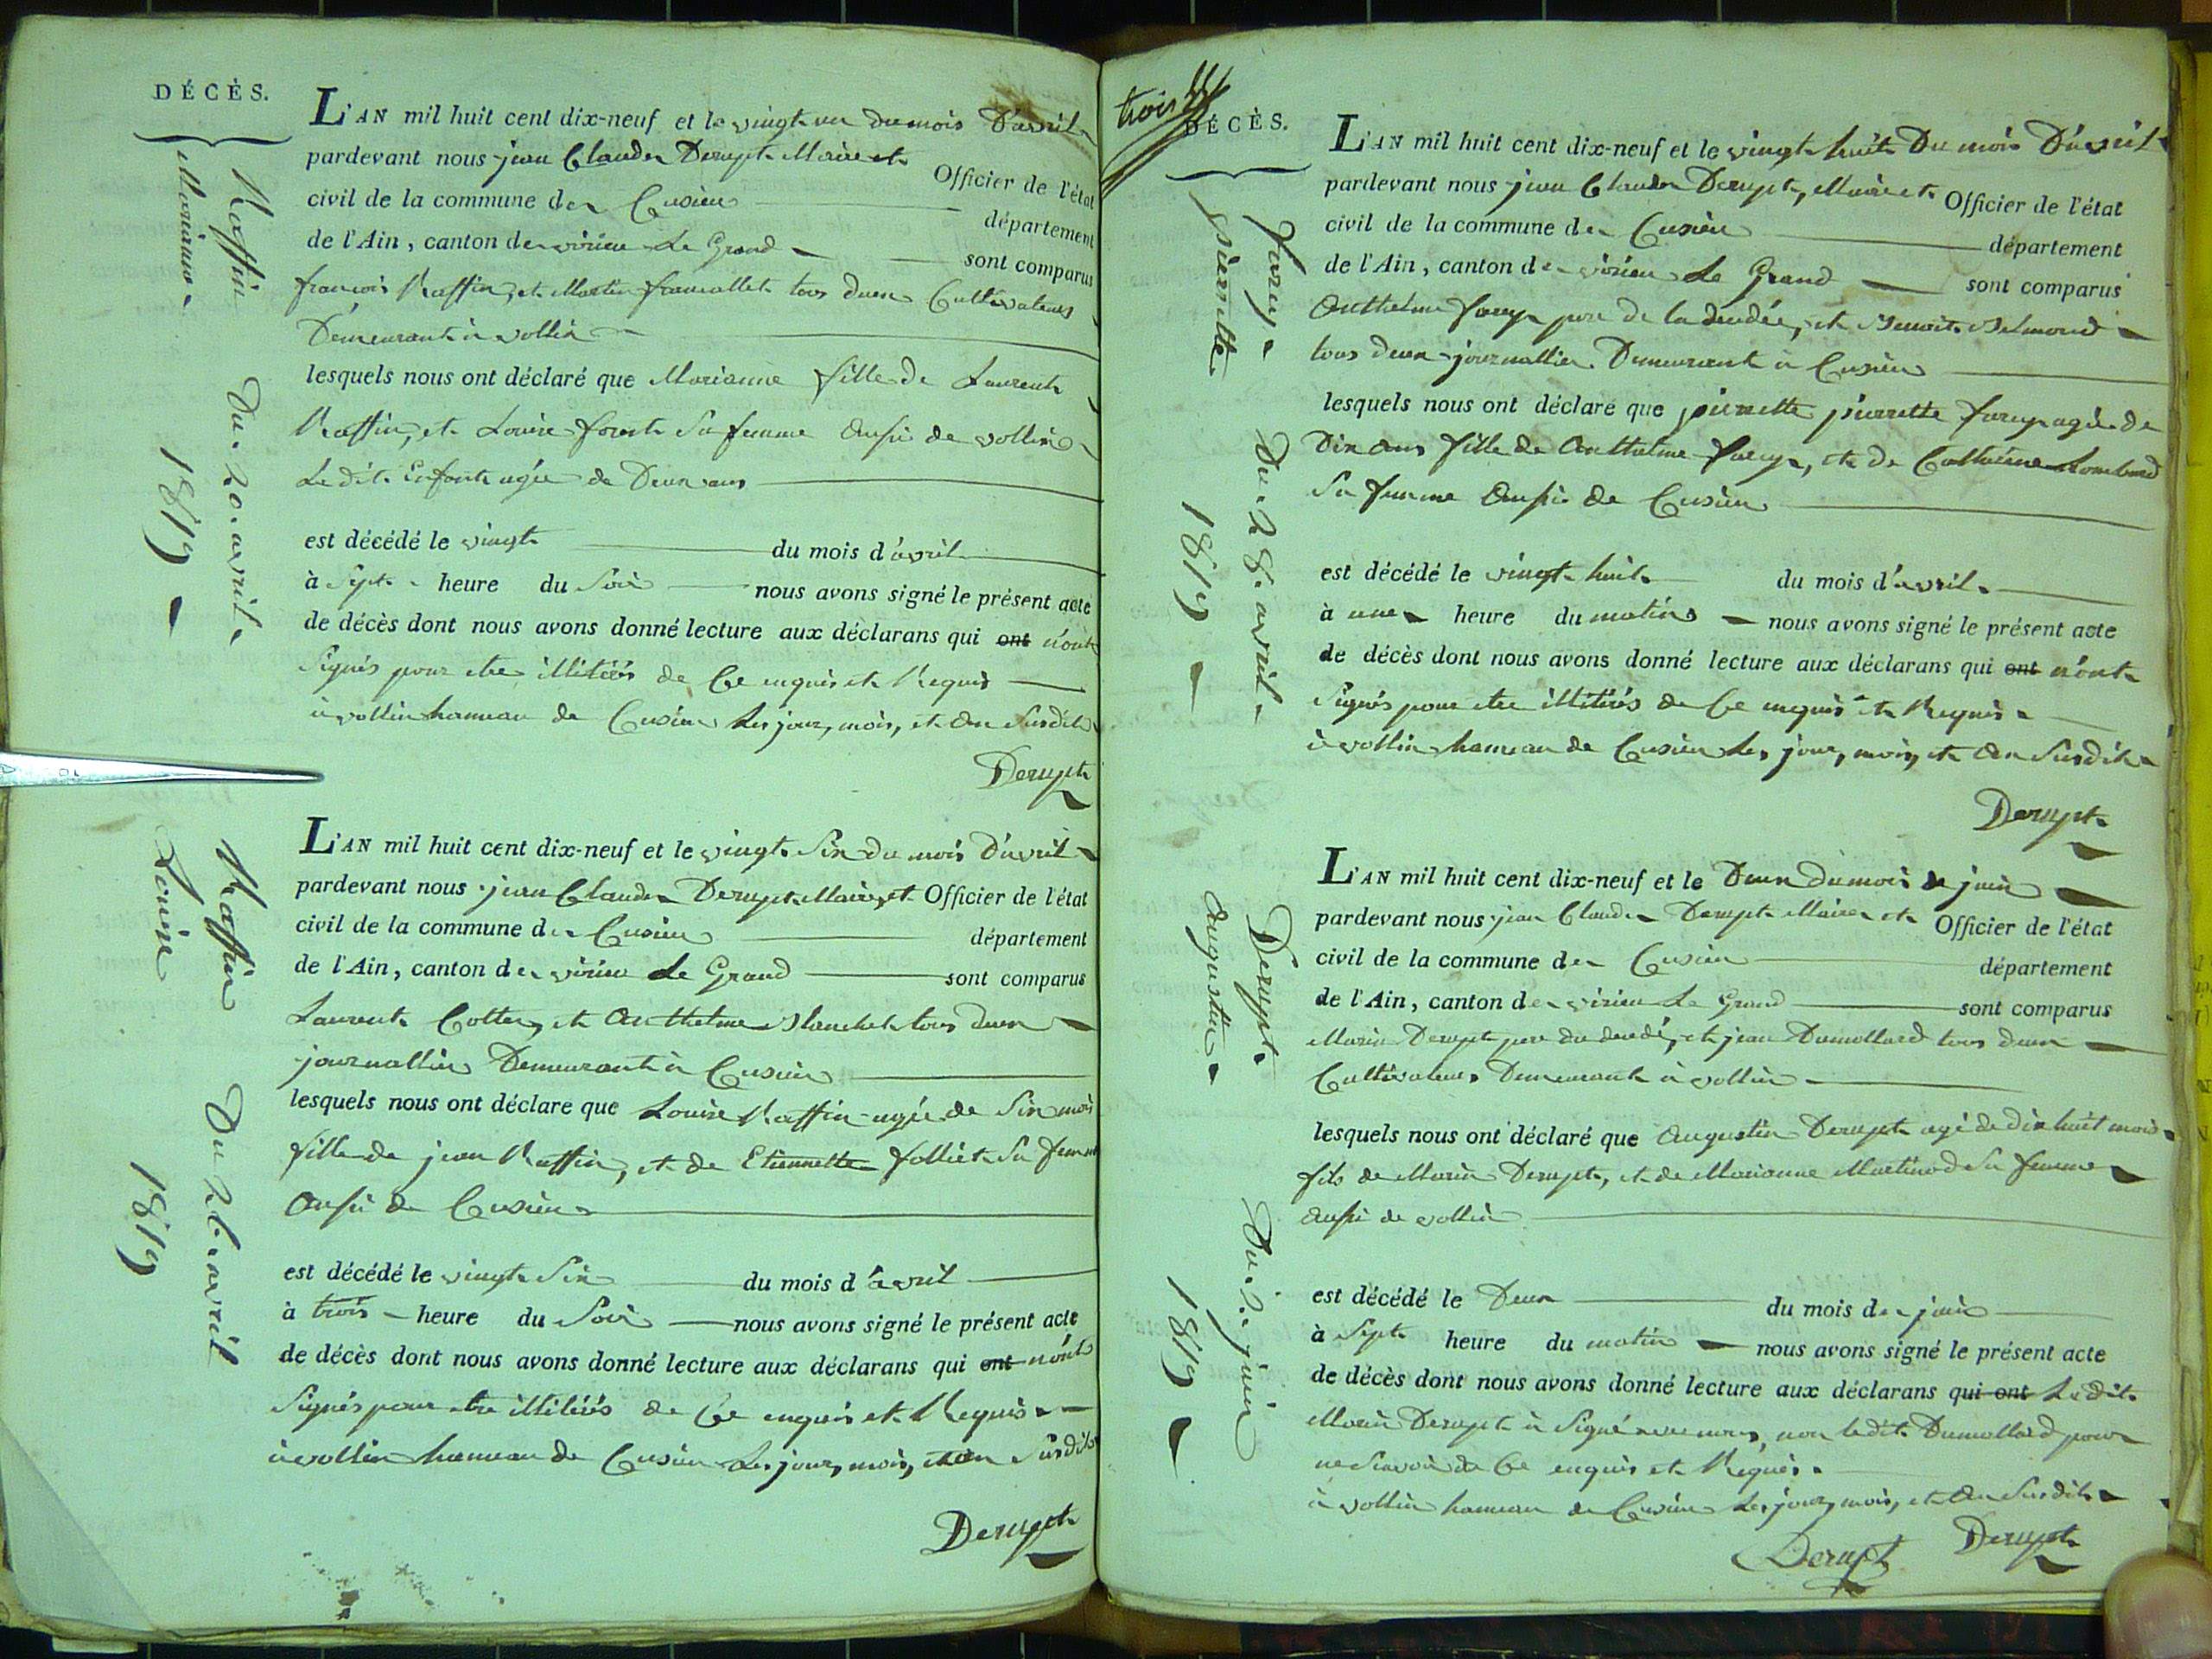 DÉCÈS.
Raffin
Marianne
Du 20 avril
1819
L'AN mil huit cent dix-neuf et le vingt un du mois D'avril
pardevant nous jean Claude Derupt Maire et Officier de l'état
civil de la commune de Cuzieu département
de l'Ain, canton de virieu Le Grand sont comparus
françois Raffin, et Martin francallet tous deux Cultivateurs
Demeurant à vollin
lesquels nous ont déclaré que Marianne fille de Laurent
Raffin, et Louise forest Sa femme Aussi de vollin
Le dit Enfant agée de Deux ans
est décédé le vingt du mois d'avril
à Sept heure du Soir nous avons signé le présent acte
de décès dont nous avons donné lecture aux déclarans qui ont n'ont
Signés pour etre illitérés de Ce enquis et Requis
à vollin hameau de Cuzieu Les jour, mois, et An Susdits
Derupt
Raffin
Louise
Du 26 avril
1819
L'AN mil huit cent dix-neuf et le vingt Six du mois D'avril
pardevant nous jean Claude Derupt Maire, et Officier de l'état
civil de la commune de Cuzieu département
de l'Ain, canton de virieu Le Grand sont comparus
Laurent Cottes, et Anthelme Blanchet tous deux
journallier Demeurant à Cuzieu
lesquels nous ont déclare que Louise Raffin agée de Six mois
fille de jean Raffin, et de Etiennette folliet Sa femme
Aussi de Cuzieu
est décédé le vingt Six du mois d'avril
à trois heure du Soir nous avons signé le présent acte
de décès dont nous avons donné lecture aux déclarans qui ont n'ont
Signés pour etre illitérés de Ce enquis et Requis
à vollin hameau de Cuzieu Les jour, mois, et an Susdits
Derupt
trois
DÉCÈS.
farey
pierrette
Du 28 avril
1819
L'AN mil huit cent dix-neuf et le vingt huit Du mois D'avril
pardevant nous jean Claude Derupt, Maire et Officier de l'état
civil de la commune de Cuzieu département
de l'Ain, canton de virieu Le Grand sont comparus
Anthelme farey pere de la décédée, et Benoit Belmond
tous deux journallier Demeurant à Cuzieu
lesquels nous ont déclaré que pierrette pierrette farey agée de
Dix ans fille de Anthelme farey, et de Catherine Lombard
Sa femme Aussi de Cuzieu
est décédé le vingt huit du mois d'avril
à une heure du matin nous avons signé le présent acte
de décès dont nous avons donné lecture aux déclarans qui ont n'ont
Signés pour etre illitérés de Ce enquis et Requis
à vollin hameau de Cuzieu Les jour, mois, et An Susdits
Derupt
Derupt
Augustin
Du 2 juin
1819
L'AN mil huit cent dix-neuf et le Deux du mois de juin
pardevant nous jean Claude Derupt Maire et Officier de l'état
civil de la commune de Cuzieu département
de l'Ain, canton de virieu Le Grand sont comparus
Marin Derupt pere du décédé, et jean Dumollard tous deux
Cultivateurs Demeurant à vollin
lesquels nous ont déclaré que Augustin Derupt agé de dix huit mois
fils de Marin Derupt, et de Marianne Martinod Sa femme
Aussi de vollin
est décédé le Deux du mois de juin
à Sept heure du matin nous avons signé le présent acte
de décès dont nous avons donné lecture aux déclarans qui ont Ledit
Marin Derupt à Signé avec nous, non ledit Dumollard pour
ne Scavoir de Ce enquis et Requis
à vollin hameau de Cuzieu Les jour, mois, et An Susdits
Derupt Derupt